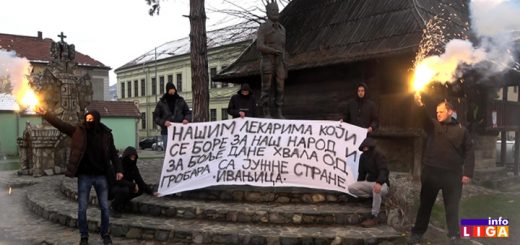 НАШИМ ЛЕКАРИМА КОЈИ
СЕ БОРЕ ЗА НАШ НАРОД И
ЗА БОЉЕ ДАНЕ ХВАЛА ОД
ГРОБАРА СА ЈУЖНЕ СТРАНЕ
-ИВАЊИЦА-
info
LIGA